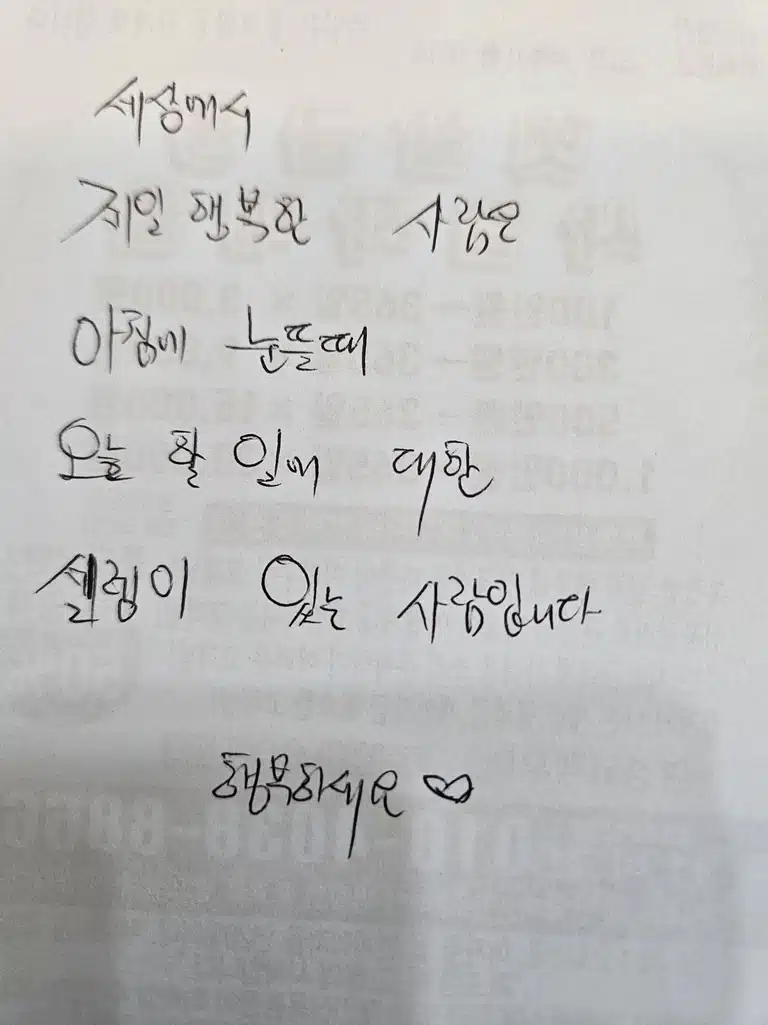 세상에서
제일 행복한 사람은
아침에 눈뜰때
오늘 할 일에 대한
설렘이 있는 사람입니다
행복하세요 ♡